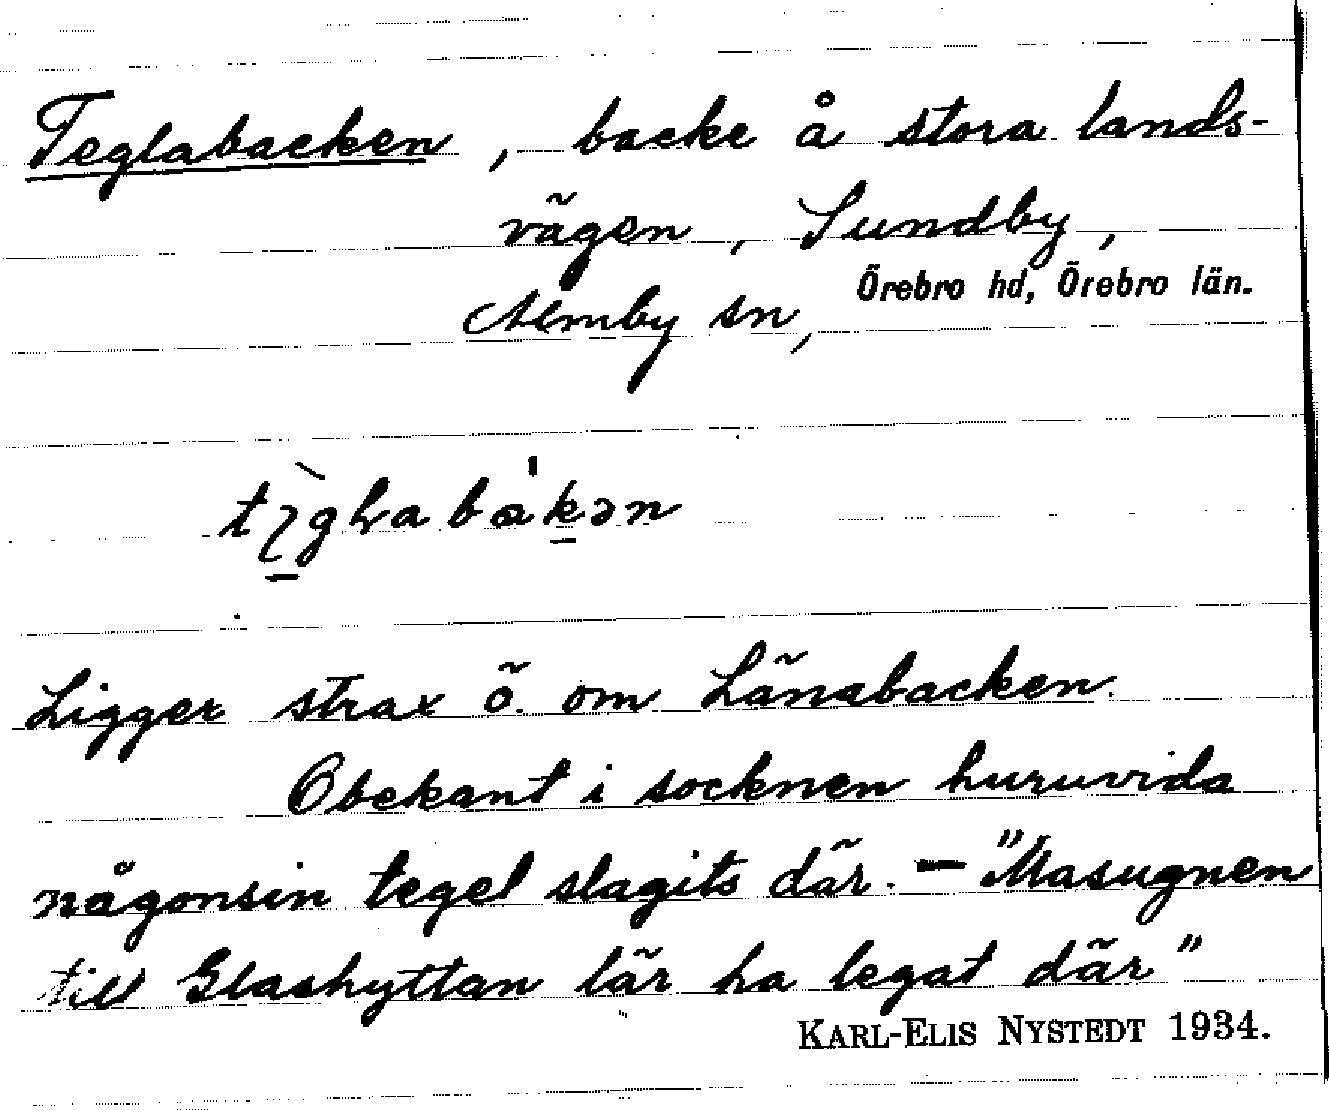 Teglabacken, backe å stora lands-
vägen, Sundby,
Almby sn, Örebro hd, Örebro län.
Ligger strax ö. om Länabacken.
Obekant i socknen huruvida
någonsin tegel slagits där. – "Masugnen
till Glashyttan lär ha legat där"
KARL-ELIS NYSTEDT 1934.